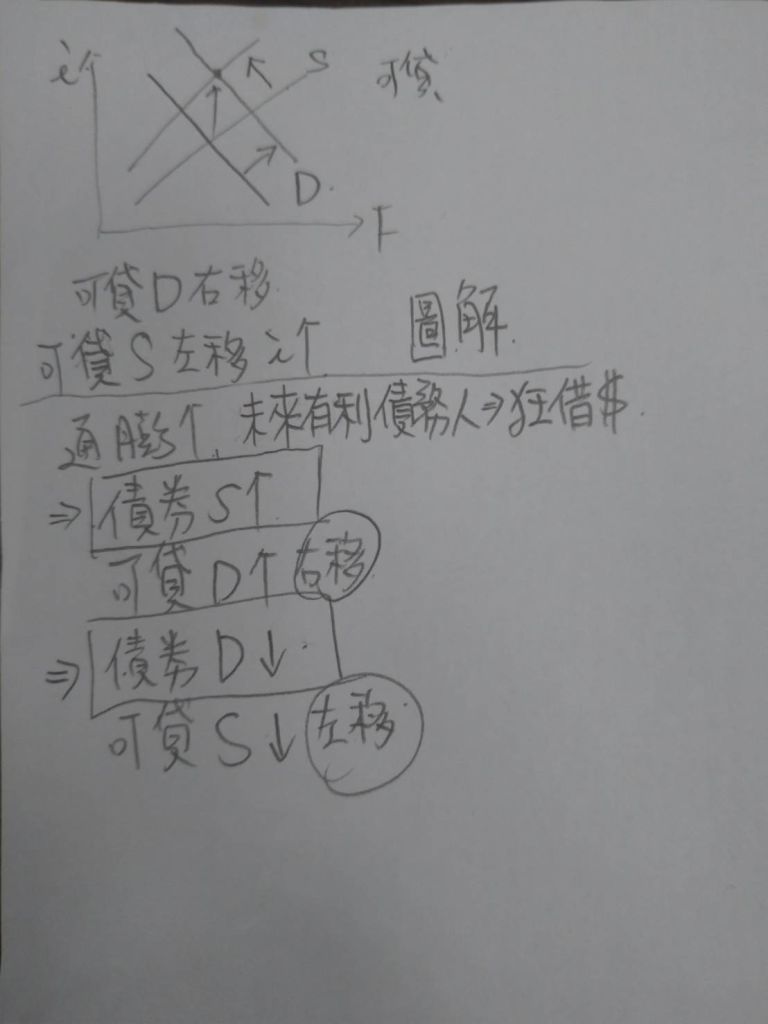 i↑
S
可貸
D
F
可貸D右移
可貸S左移 i↑
圖解
通膨↑ 未來有利債務人⇒狂借$
⇒ 債券S↑
可貸D↑ 右移
⇒ 債券D↓
可貸S↓ 左移